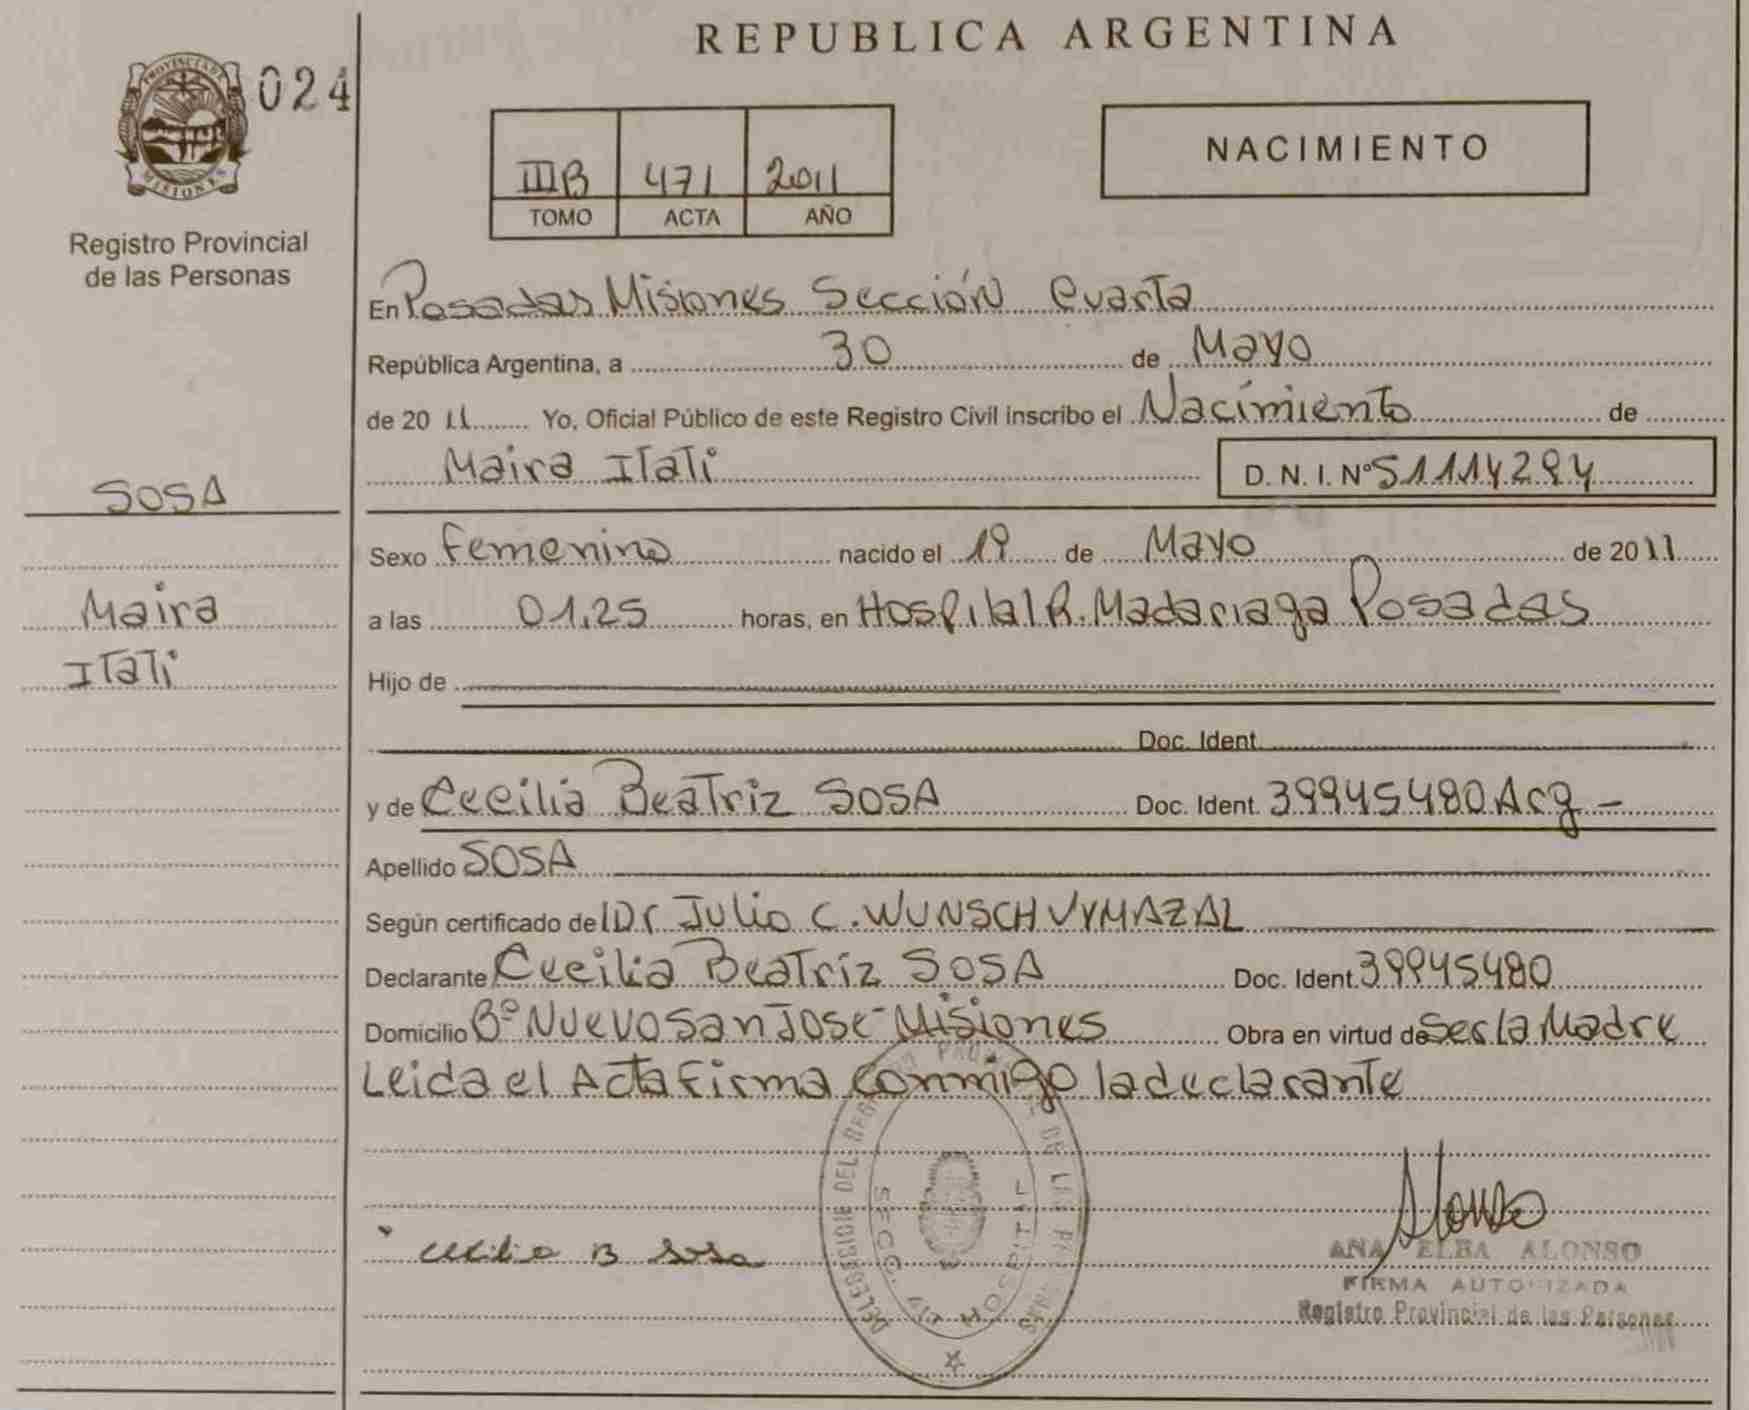 REPUBLICA ARGENTINA
PROVINCIA DE
MISIONES
024
Registro Provincial
de las Personas
IIIB 471 2011
TOMO ACTA AÑO
NACIMIENTO
En Posadas Misiones Sección Cuarta
República Argentina, a 30 de Mayo
de 2011 Yo, Oficial Público de este Registro Civil inscribo el Nacimiento de
Maira Itati D. N. I. Nº 51114294
SOSA
Sexo Femenino nacido el 19 de Mayo de 2011
Maira
a las 01,25 horas, en Hospital R. Madariaga Posadas
Itati
Hijo de
Doc. Ident.
y de Cecilia Beatriz SOSA Doc. Ident. 39945480 Arg -
Apellido SOSA
Según certificado del Dr Julio C. WUNSCH VYMAZAL
Declarante Cecilia Beatriz SOSA Doc. Ident. 39945480
Domicilio Bº Nuevo San Jose - Misiones Obra en virtud de Ser la Madre
Leida el Acta Firma Conmigo la declarante
Cecilia B Sosa
Alonso
ANA ELBA ALONSO
FIRMA AUTORIZADA
Registro Provincial de las Personas
DELEGACION DEL DE LAS
SECC. HOSPITAL